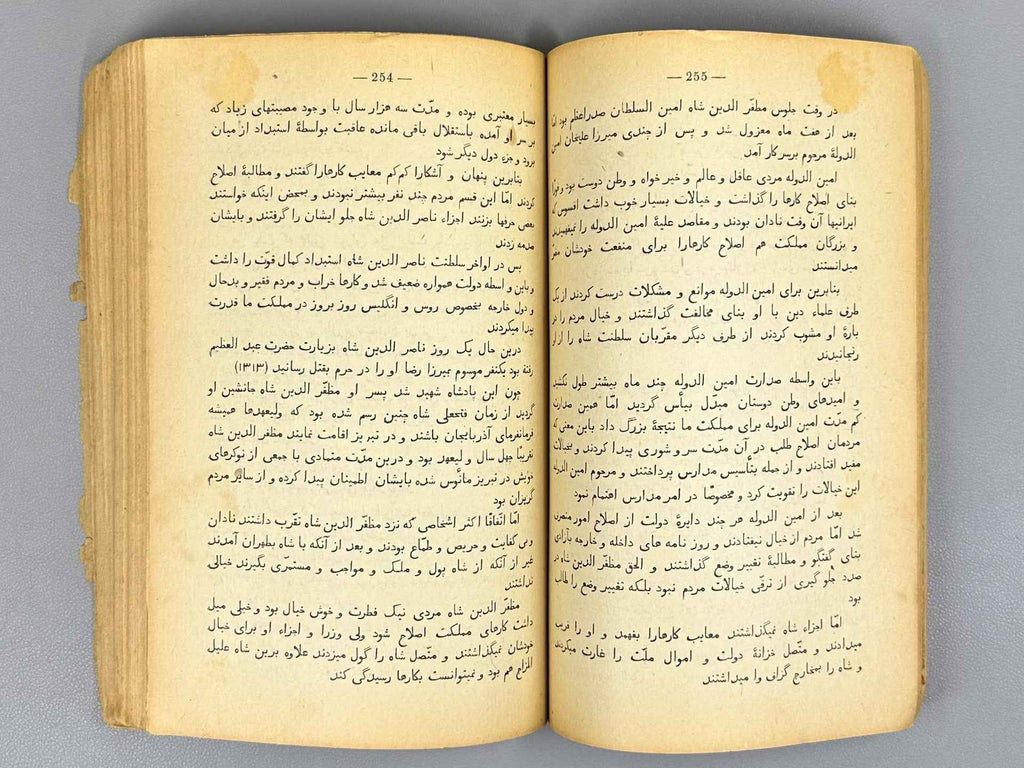 — 254 —
بسیار معتبری بوده و مدّت سه هزار سال با وجود مصیبتهای زیاد که
بر سر او آمده باستقلال باقی مانده عاقبت بواسطهٔ استبداد از میان
برود و جزء دول دیگر شود
بنابرین پنهان و آشکارا کم کم معایب کارهارا گفتند و مطالبهٔ اصلاح
کردند امّا این قسم مردم چند نفر بیشتر نبودند و بمحض اینکه خواستند
بعض حرفها بزنند اجزاء ناصر الدین شاه جلو ایشان را گرفتند و بایشان
صدمه زدند
پس در اواخر سلطنت ناصر الدین شاه استبداد کمال قوّت را داشت
و باین واسطه دولت همواره ضعیف شد و کارها خراب و مردم فقیر و بدحال
و دول خارجه بخصوص روس و انگلیس روز بروز در مملکت ما قدرت
پیدا میکردند
درین حال یک روز ناصر الدین شاه بزیارت حضرت عبد العظیم
رفته بود یکنفر موسوم بمیرزا رضا او را در حرم بقتل رسانید (۱۳۱۳)
چون این پادشاه شهید شد پسر او مظفّر الدین شاه جانشین او
گردید از زمان فتحعلی شاه چنین رسم شده بود که ولیعهدها همیشه
فرمانفرمای آذربایجان باشند و در تبریز اقامت نمایند مظفر الدین شاه
تقریبًا چهل سال و لیعهد بود و درین مدّت متمادی با جمعی از نوکرهای
خویش در تبریز مأنوس شده بایشان اطمینان پیدا کرده و از سایر مردم
گریزان بود
امّا اتّفاقًا اکثر اشخاصی که نزد مظفّر الدین شاه تقرب داشتند نادان
و بی کفایت و حریص و طمّاع بودند و بعد از آنکه با شاه بطهران آمدند
غیر از آنکه از شاه پول و ملک و مواجب و مستمرّی بگیرند خیالی
نداشتند
مظفّر الدین شاه مردی نیک فطرت و خوش خیال بود و خیلی میل
داشت کارهای مملکت اصلاح شود ولی وزرا و اجزاء او برای خیال
خودشان نمیگذاشتند و متّصل شاه را گول میزدند علاوه برین شاه علیل
المزاج هم بود و نمیتوانست بکارها رسیدگی کند
— 255 —
در وقت جلوس مظفّر الدین شاه امین السلطان صدراعظم بود امّا
بعد از هفت ماه معزول شد و پس از چندی میرزا علیخان امین
الدولهٔ مرحوم برسر کار آمد
امین الدوله مردی عاقل و عالم و خیر خواه و وطن دوست بود و فورًا
بنای اصلاح کارها را گذاشت و خیالات بسیار خوب داشت افسوس که
ایرانیها آن وقت نادان بودند و مقاصد عالیهٔ امین الدوله را نمیفهمیدند
و بزرگان مملکت هم اصلاح کارهارا برای منفعت خودشان مضرّ
میدانستند
بنابرین برای امین الدوله موانع و مشکلات درست کردند از یک
طرف علماء دین با او بنای مخالفت گذاشتند و خیال مردم را در
بارهٔ او مشوب کردند از طرف دیگر مقرّبان سلطنت شاه را از او
رنجانیدند
باین واسطه صدارت امین الدوله چند ماه بیشتر طول نکشید
و امیدهای وطن دوستان مبدّل بیأس گردید امّا همین صدارت
کم مدّت امین الدوله برای مملکت ما نتیجهٔ بزرگ داد باین معنی که
مردمان اصلاح طلب در آن مدّت سر و شوری پیدا کردند و بخیالات
مفید افتادند و از جمله بتأسیس مدارس پرداختند و مرحوم امین الدوله
این خیالات را تقویت کرد و مخصوصًا در امر مدارس اهتمام نمود
بعد از امین الدوله هر چند دایرهٔ دولت از اصلاح امور منصرف
شد امّا مردم از خیال نیفتادند و روز نامه های داخله و خارجه بآزادی
بنای گفتگو و مطالبهٔ تغییر وضع گذاشتند و الحق مظفّر الدین شاه در
صدد جلو گیری از ترقّی خیالات مردم نبود بلکه تغییر وضع را طالب
بود
امّا اجزاء شاه نمیگذاشتند معایب کارهارا بفهمد و او را فریب
میدادند و متّصل خزانهٔ دولت و اموال ملّت را غارت میکردند
و شاه را بمخارج گزاف وا میداشتند